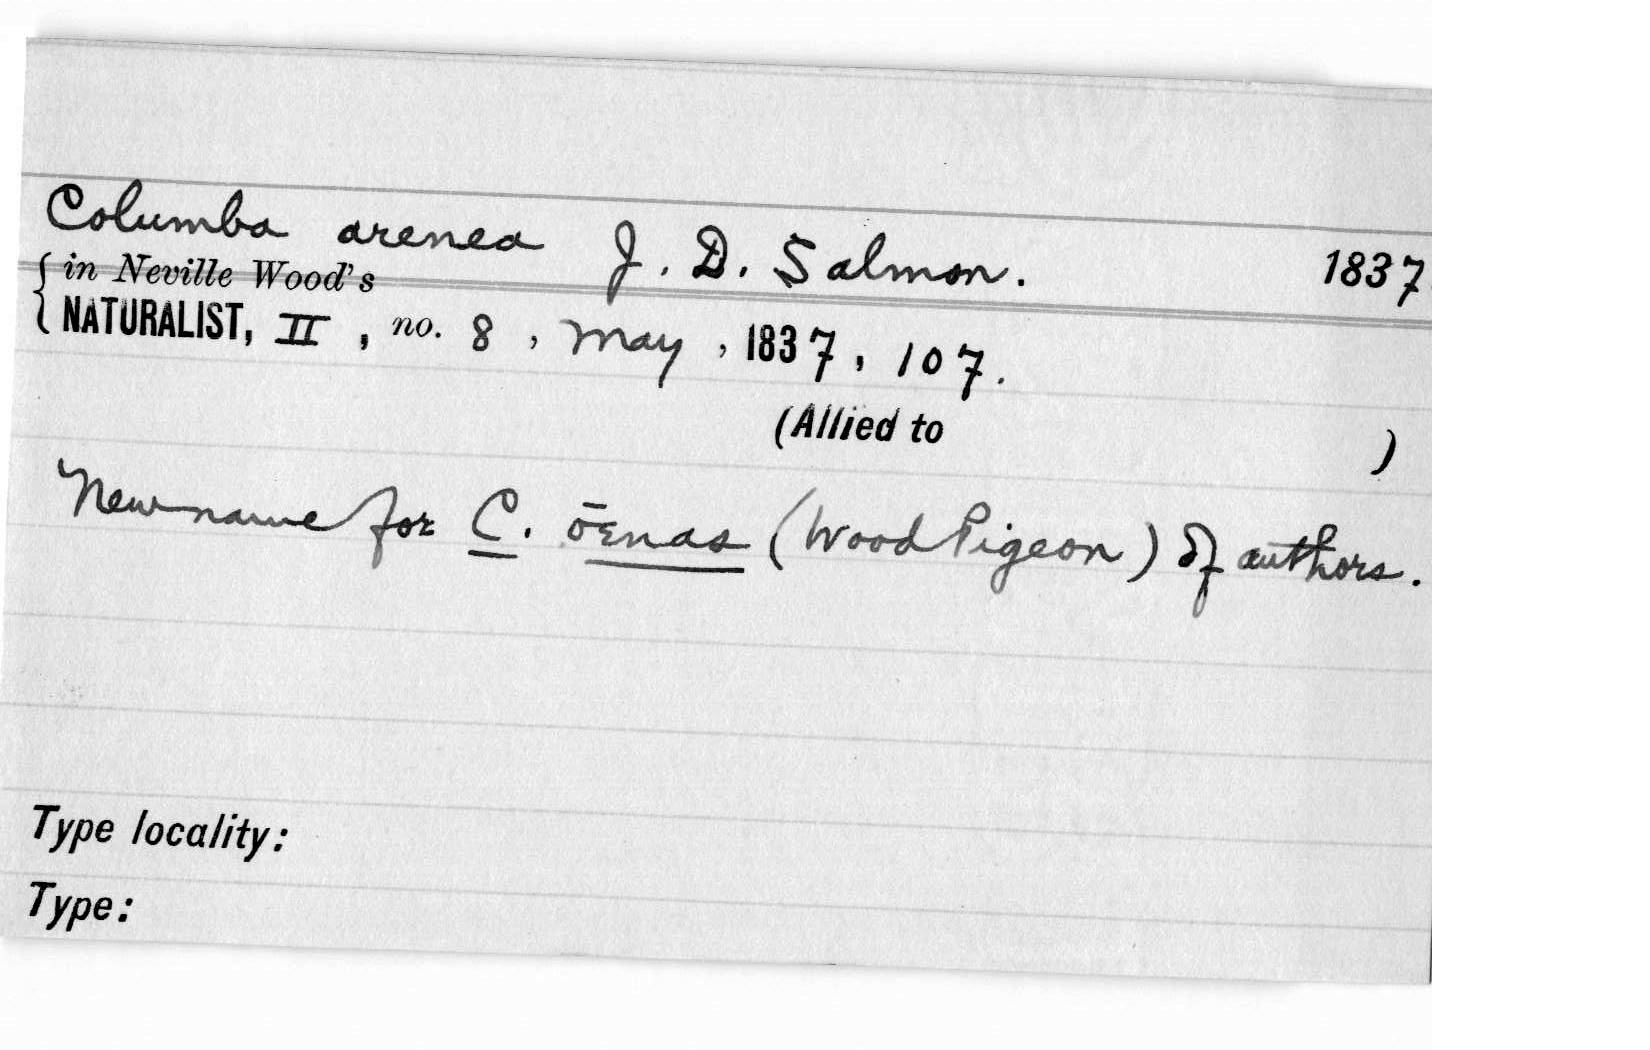 Columba arenea J. D. Salmon. 1837
in Neville Wood's
NATURALIST, II, no. 8, May, 1837, 107.
(Allied to )
New name for C. ōenas (Wood Pigeon) of authors.
Type locality:
Type: